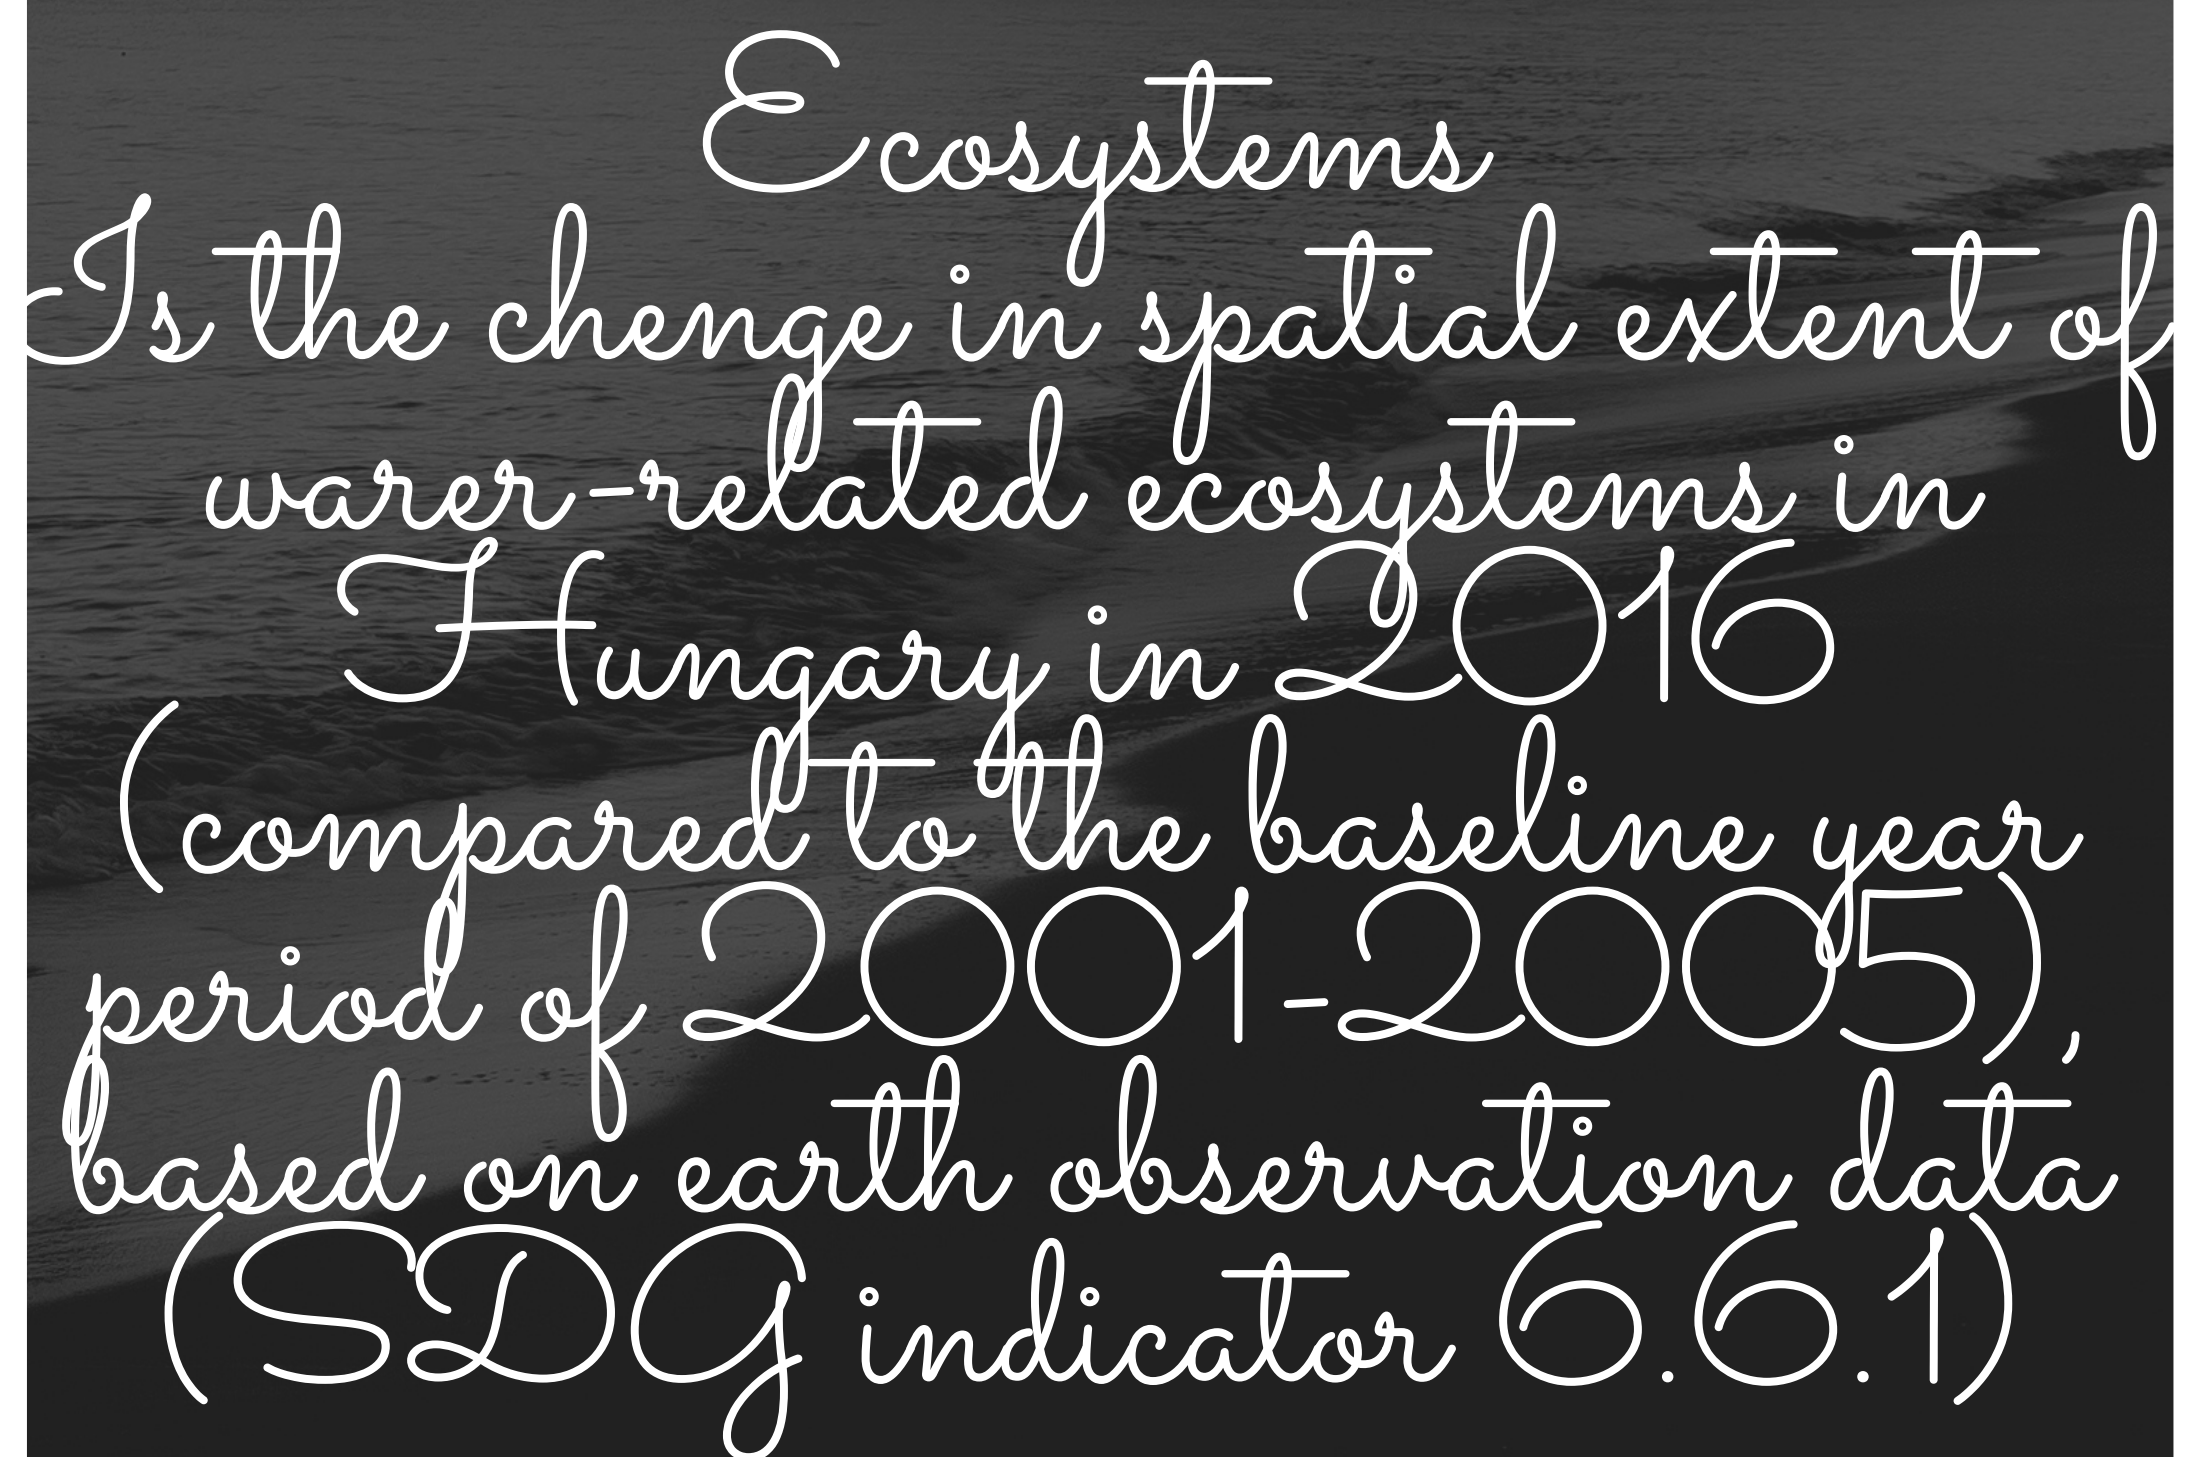 Ecosystems
Is the chenge in spatial extent of
warer-related ecosystems in
Hungary in 2016
(compared to the baseline year
period of 2001-2005),
based on earth observation data
(SDG indicator 6.6.1)